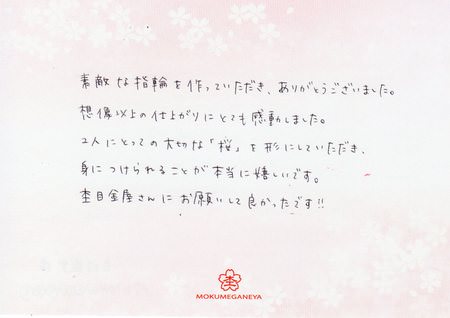 素敵な指輪を作っていただき、ありがとうございました。
想像以上の仕上がりにとても感動しました。
2人にとっての大切な「桜」を形にしていただき、
身につけられることが本当に嬉しいです。
杢目金屋さんにお願いして良かったです!!
杢
MOKUMEGANEYA